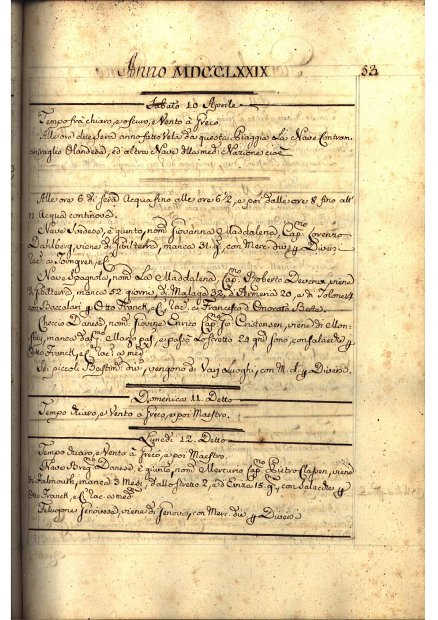 Anno MDCCLXXIX
53
Sabato 10 Aprile
Tempo frà chiaro, e oscuro, e Vento à Greco.
Alle ore due Sera anno fatto Vela da questa Piaggia La Nave Contram
miraglio Olandesa, ed altra Nave della med: Nazione
Alle ore 6 di Sera Acqua fino alle ore 6 1/2, e poi dalle ore 8 fino all'
11 Acqua continova.
Nave Svedese, è quinto, nom: Giovanna Maddalena, Cap:no Lorenzo
Dahlberg, viene di Gibilterra, manca 31 g:, con Merc: div: p Diversi
Nave Spagnola, nom: La Maddalena, Cap:no Roberto Devereux, viene
di Gibilterra, manca 52 giorni, di Malaga 32, d'Armeria 20, e di Tolone 4
con Baccalari p Otto Franck, e C: e Francesco d'Onorato Berte.
Danese, nom: Enrico Cap:no Cristensen, viene di
manca dal p: Marzo pas:, e passò Lo stretto 21 gni sono, con salacche p
Otto Franck, e C:
Sei piccoli Bastim:, vengono di Varj Luoghi, con M. d. p Diversi.
Domenica 11 Detto
Tempo scuro, e Vento à Greco, e poi Maestro.
Lunedì 12 Detto
Tempo scuro, e Vento à Greco, e poi Maestro.
Nave Danese, è quinto, nom: Mercurio Cap:no Pietro Clasen, viene
di Falmouth, manca 3 Mesi, dallo stretto 2, e d'Eviza 15 g:, con Salacche p
Otto Franck, e C:
Felugone Genovese, viene di Genova, con Merc: div: p Diversi